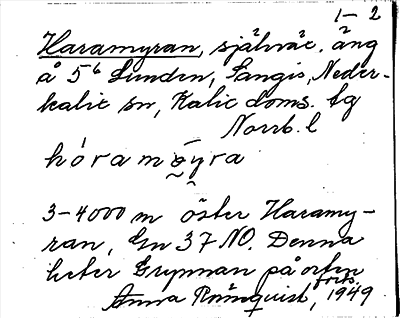 1-2
Haramyran, själväc, äng
å 5⁶ Lunden, Sangis, Neder-
kalix sn, Kalix doms. tg
Norrb. l
hóramøyra
3-4000 m öster Haramy-
ran, Gn 37 NO. Denna
heter Grynnan på orten
forts.
Anna Rönnquist, 1949